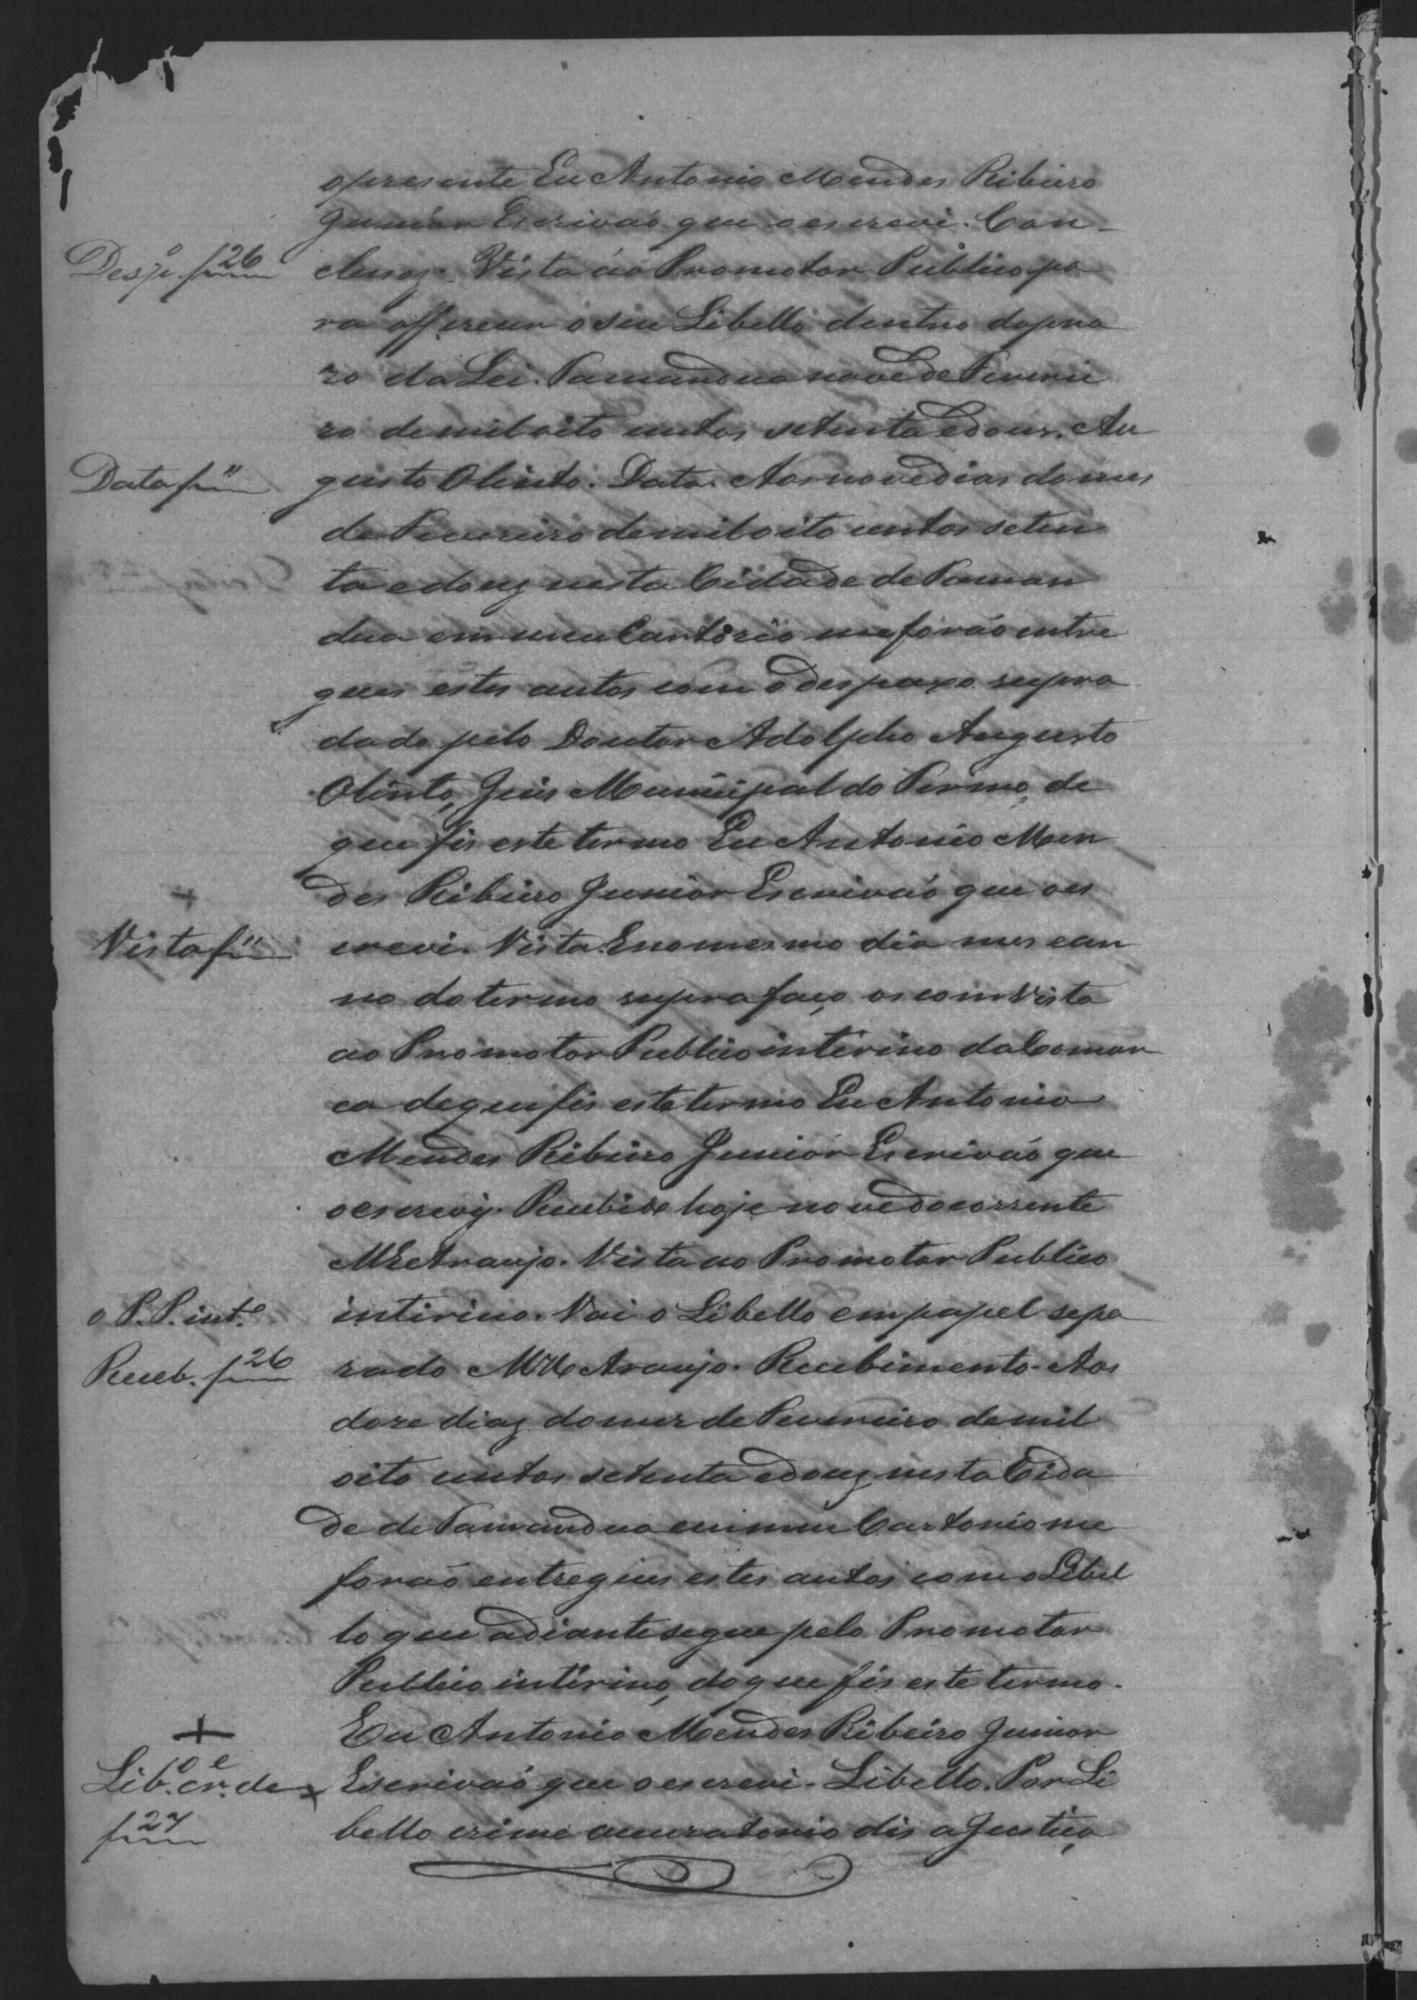 o presente Eu Antonio Mendes Ribeiro
Junior Escrivaõ que o escrevi. Con-
Desp.º f. 26
cluzaõ. Vista áo Promotor Publico pa
ra offerecer o seu Libello dentro do pra
zo da Lei. Tamandua nove de Feverei
ro de mil oito centos setenta e dous. Au
Data f. "
gusto Olinto. Data. Aos nove dias do mes
de Fevereiro de mil oito centos seten
ta e douz nesta Cidade de Taman
dua em meu Cartorio me foraõ entre
gues estes autos com o despaxo supra
dado pelo Doutor Adolpho Augusto
Olinto, Juis Municipal do Termo, de
que fis este termo Eu Antonio Men
des Ribeiro Junior Escrivaõ que o es
Vista f. "
crevi. Vista. E no mesmo dia mes e an
no do termo supra faço os com vista
ao Promotor Publico interino da Comar
ca de que fis este termo Eu Antonio
Mendes Ribeiro Junior Escrivaõ que
o escrevy. Recebi os hoje nove do corrente
Araujo. Vista ao Promotor Publico
o P. P. int.º
interino. Vai o Libello em papel sepa
Receb. f. 26
rado Araujo. Recebimento. Aos
doze diaz do mes de Fevereiro de mil
oito centos setenta e douz nesta Cida
de de Tamandua em meu Cartorio me
foraõ entregues estes autos com o Libel
lo que adiante segue pelo Promotor
Publico interino, do que fis este termo.
Eu Antonio Mendes Ribeiro Junior
Lib.º cr.e de
Escrivaõ que o escrevi. Libello. Por Li
f. 27
bello crime accuzatorio dis a Justiça